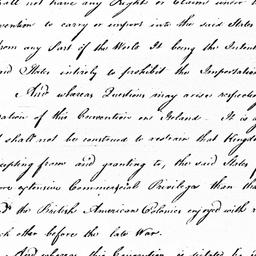 shall not have any Rights or Claims under
vention to carry or import into the said States
from any Part of the World It being the Intent
and States intirely to prohibit the Importation
And whereas Questions may arise respect
ration of this Convention on Ireland. It is
shall not be construed to restrain that Kingd
epting from and granting to, the said States
more extensive Commercial Privileges than th
the British American Colonies enjoyed with
ch other before the late War.
And whereas this Convention is